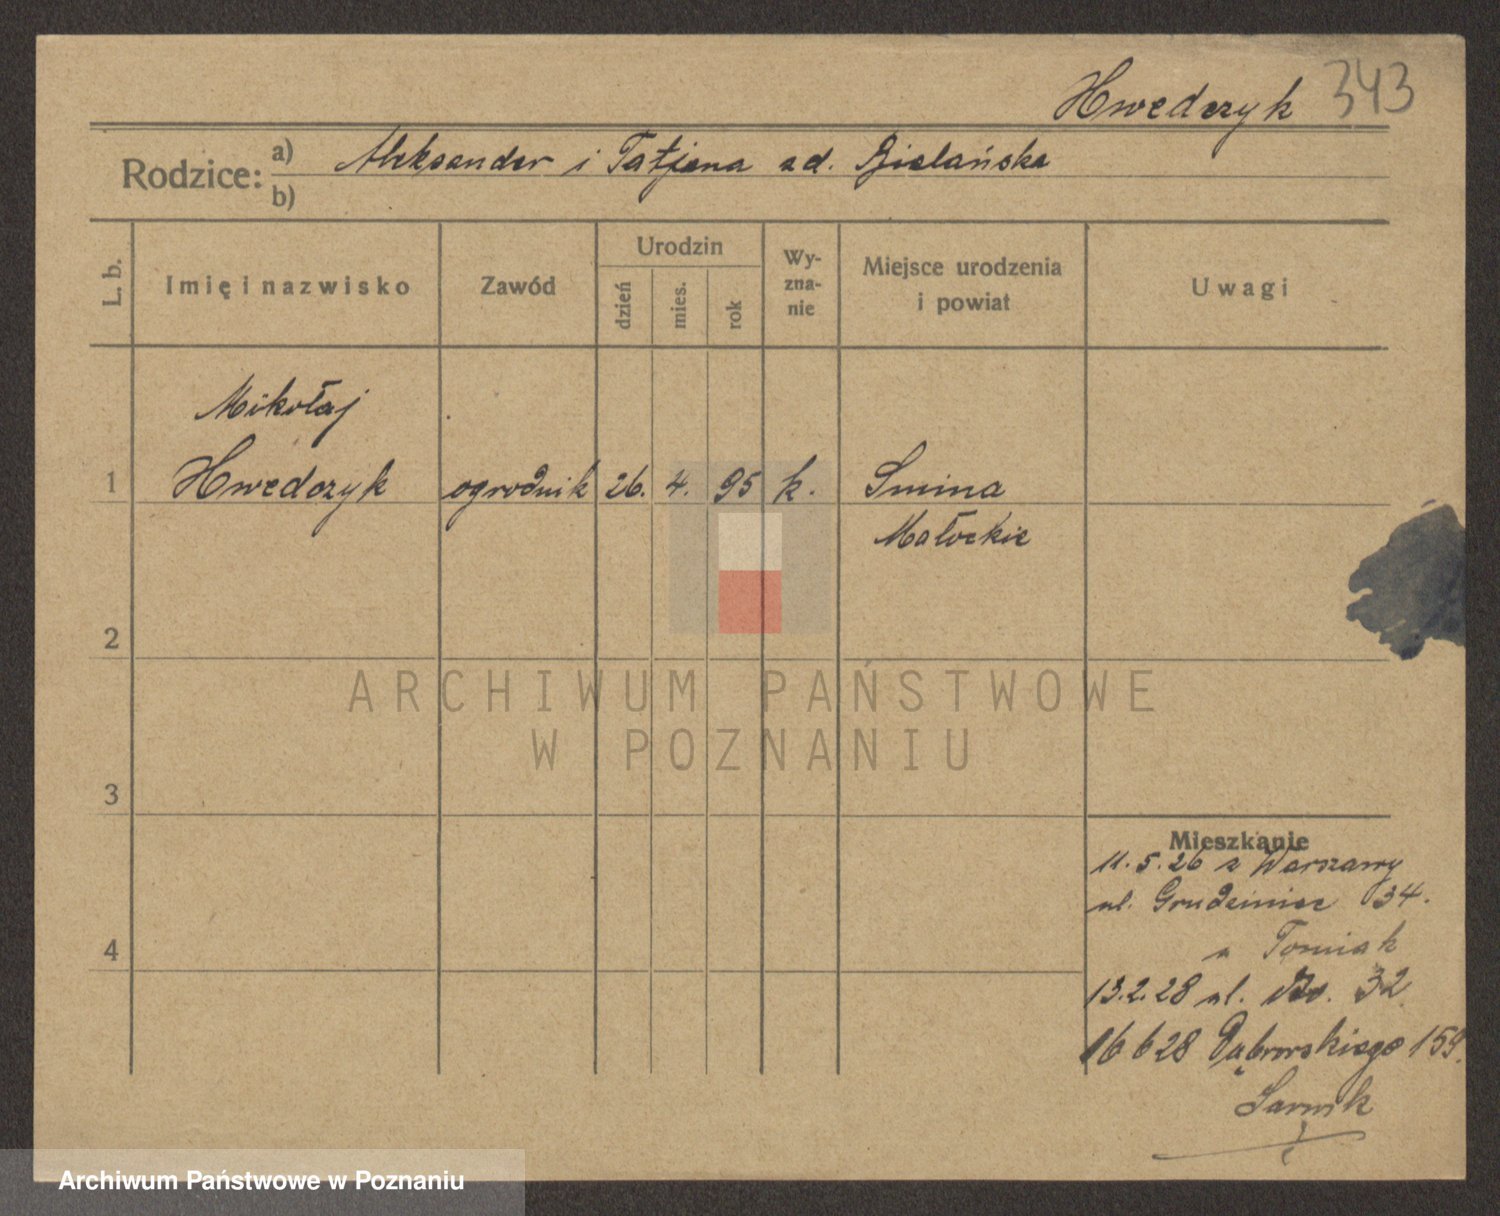 Hwedczyk 343
Rodzice: a) Aleksander i Tatjana zd. Bielańska
b)
L. b.
Imię i nazwisko
Zawód
Urodzin
dzień
mies.
rok
Wy-
zna-
nie
Miejsce urodzenia
i powiat
Uwagi
Mikołaj
1 Hwedczyk ogrodnik 26. 4. 95 k. Smina
Małockie
2
3
4
Mieszkanie
11.5.26 z Warszawy
ul. Grudzieniec 34.
a Tomiak
13.2.28 ul. 32
16 6 28 Dąbrowskiego 159.
ARCHIWUM PAŃSTWOWE
W POZNANIU
Archiwum Państwowe w Poznaniu